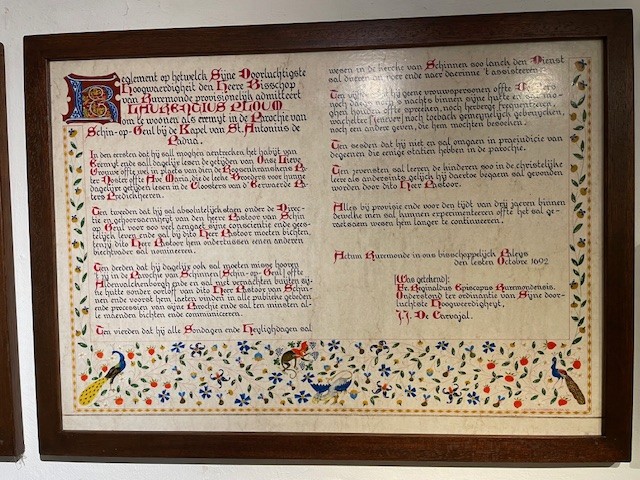 Reglement op het welck Sijne Doorluchtigste
Hoogwaerdigheit den Heere Bisschop
van Ruremonde provisionelijk admitteert
LAURENTIUS PLOUM
om te woonen als eremyt in de Parochie van
Schin-op-Geul bij de Kapel van St. Antonius de
Padua.
In den eersten dat hij sall moghen aentrecken het habijt van
Eremyt ende sal dagelijx lesen de getyden van Onse Lieve
Vrouwe offte wel in plaets van dien de Roosenkranskens Pa-
ter Noster offte Ave Maria, die de leeke Broeders voor hunne
dagelijxe getijden lesen in de Cloosters van d'Eerwaerde Pa-
ters Predickheeren.
Ten tweeden dat hij sal absolutelijk staen onder de Direc-
tie en gehoorsaemheyt van den heere Pastoor van Schin
op Geul voor soo veel aengaet sijne conscientie ende gees-
telijck leven ende sal bij dito Heer Pastoor moeten bichten,
tenzij dito Heer Pastoor hem ondertussen eenen anderen
biechtvader sal nomineren.
Ten derden dat hij dagelijx ook sal moeten misse hooren
't zij in de Parochie van Schin of Schin-op-Geul offte
Aldenvalckenborgh ende en sal niet vernachten buijten sij-
ne hutte sonder oorloff van dito Heer Pastoor van Schin
nen ende voorst hem laeten vinden in alle publicke gebeden
ende processien van sijne Parochie ende sal ten minsten al-
le maenden bichten ende communiceren.
Ten vierden dat hij alle Sondagen ende Heylighdagen sal
wesen in de kercke van Schinnen soo lanck den Dienst
sal dueren om eer ende naer daerinne 't assisteren.
Ten vijfden dat hij gene vrouwspersonen offte
noch daegs noch s' nachts binnen sijne hutte en
ghen houden offte spreeken, noch herberge frequenteren,
wachten noch taback gemeynelijk gebruycken,
noch een andere geven, die hem mochten besoeken.
Ten sesden dat hij niet en sal omgaen in praejudicie van
degeenen die eenige statien hebben in de parochie.
Ten sevensten sal leeren de kinderen soo in de christelijcke
leere als anderesints gelijck hij daertoe bequam sal gevonden
worden door dito Heer Pastoor.
Alles bij provisie ende voor den tijdt van drij jaeren binnen
dewelke men sal kunnen experimenteeren offte het sal ge-
raetsaem wesen hem langer te continueeren.
Actum Ruremonde in ons bisschoppelijck Paleys
den lesten Octobre 1692
[Was getekend]:
Fr. Reginaldus Episcopus Ruremondensis.
Onderstond ter ordinantie van Sijne door-
luchtste Hoogweerdigheyt,
J.J. De Carvajal.